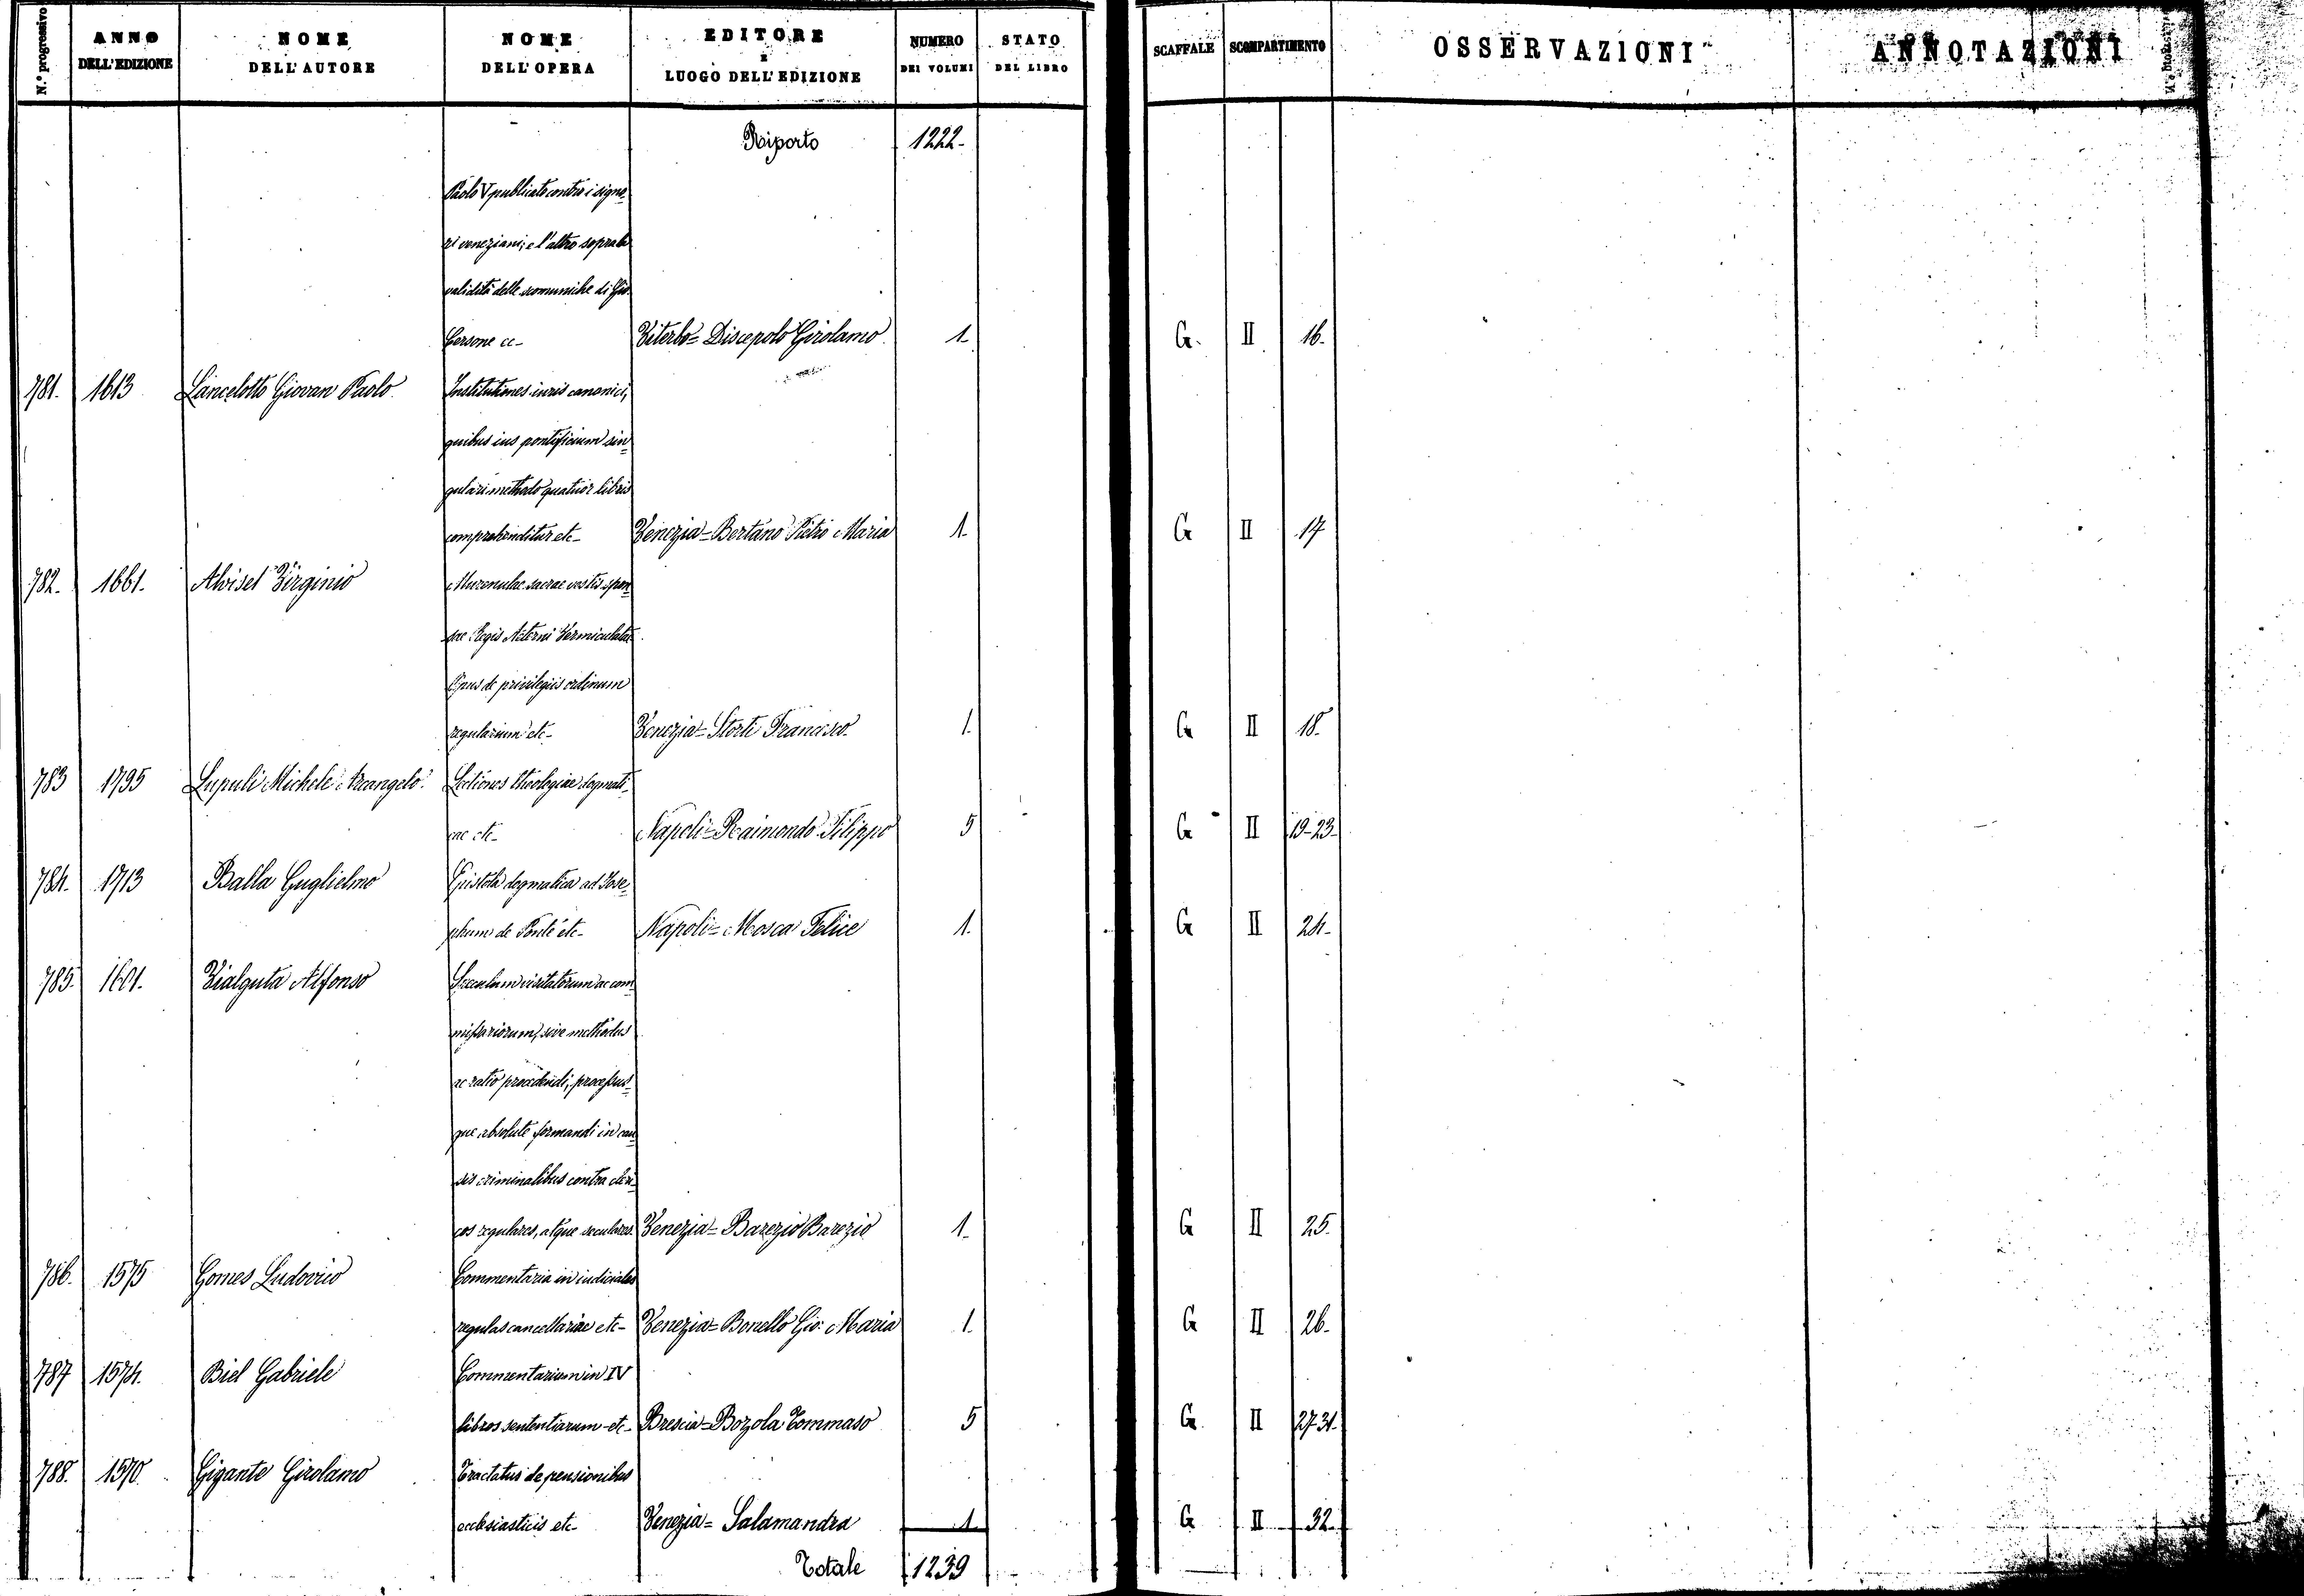 N.° progressivo ANNO DELL'EDIZIONE NOME DELL'AUTORE NOME DELL'OPERA EDITORE E LUOGO DELL'EDIZIONE NUMERO DEI VOLUMI STATO DEL LIBRO SCAFFALE SCOMPARTIMENTO OSSERVAZIONI ANNOTAZIONI
Riporto 1222-
Paolo V publicato contro i signo-
ri veneziani; e l'altro sopra la
validità delle scomuniche di Gio.
Gersone ec- Viterbo= Discepolo Girolamo 1- G. II. 16.
781. 1613 Lancelotto Giovan Paolo Institutiones iuris canonici,
quibus ius pontificium sin-
gulari methodo quatuor libris
comprehenditur etc- Venezia= Bertano Pietro Maria 1- G II 17
782. 1661. Alviset Virginio Murenulae sacrae vestis spon-
sae Regis Aeterni Vermiculatae
Opus de privilegiis ordinum
regularium etc- Venezia= Storti Francesco. 1. G II 18.
783 1795 Lupuli Michele Arcangelo. Lectiones theologiae dogmati-
cae etc- Napoli= Raimondo Filippo 5 G II 19-23-
784. 1713 Balla Guglielmo Epistola dogmatica ad Jose-
phum de Ponte etc- Napoli= Mosca Felice 1. G II 24-
785. 1601. Vialguta Alfonso Speculum visitatorum ac com-
missariorum, sive methodus
ac ratio procedendi, processus-
que absolute formandi in cau-
sis criminalibus contra cleri-
cos regulares, atque seculares. Venezia= Barezio Barezio 1- G II 25.
786. 1575 Gomes Ludovico Commentaria in iudiciales
regulas cancellariae etc- Venezia= Bonello Gio: Maria 1. G II 26.
787 1574. Biel Gabriele Commentarium in IV
libros sententiarum etc- Brescia= Bozola Tommaso 5 G. II 27-31.
788. 1570. Gigante Girolamo Tractatus de pensionibus
ecclesiasticis etc- Venezia= Salamandra 1. G II 32.
Totale 1239